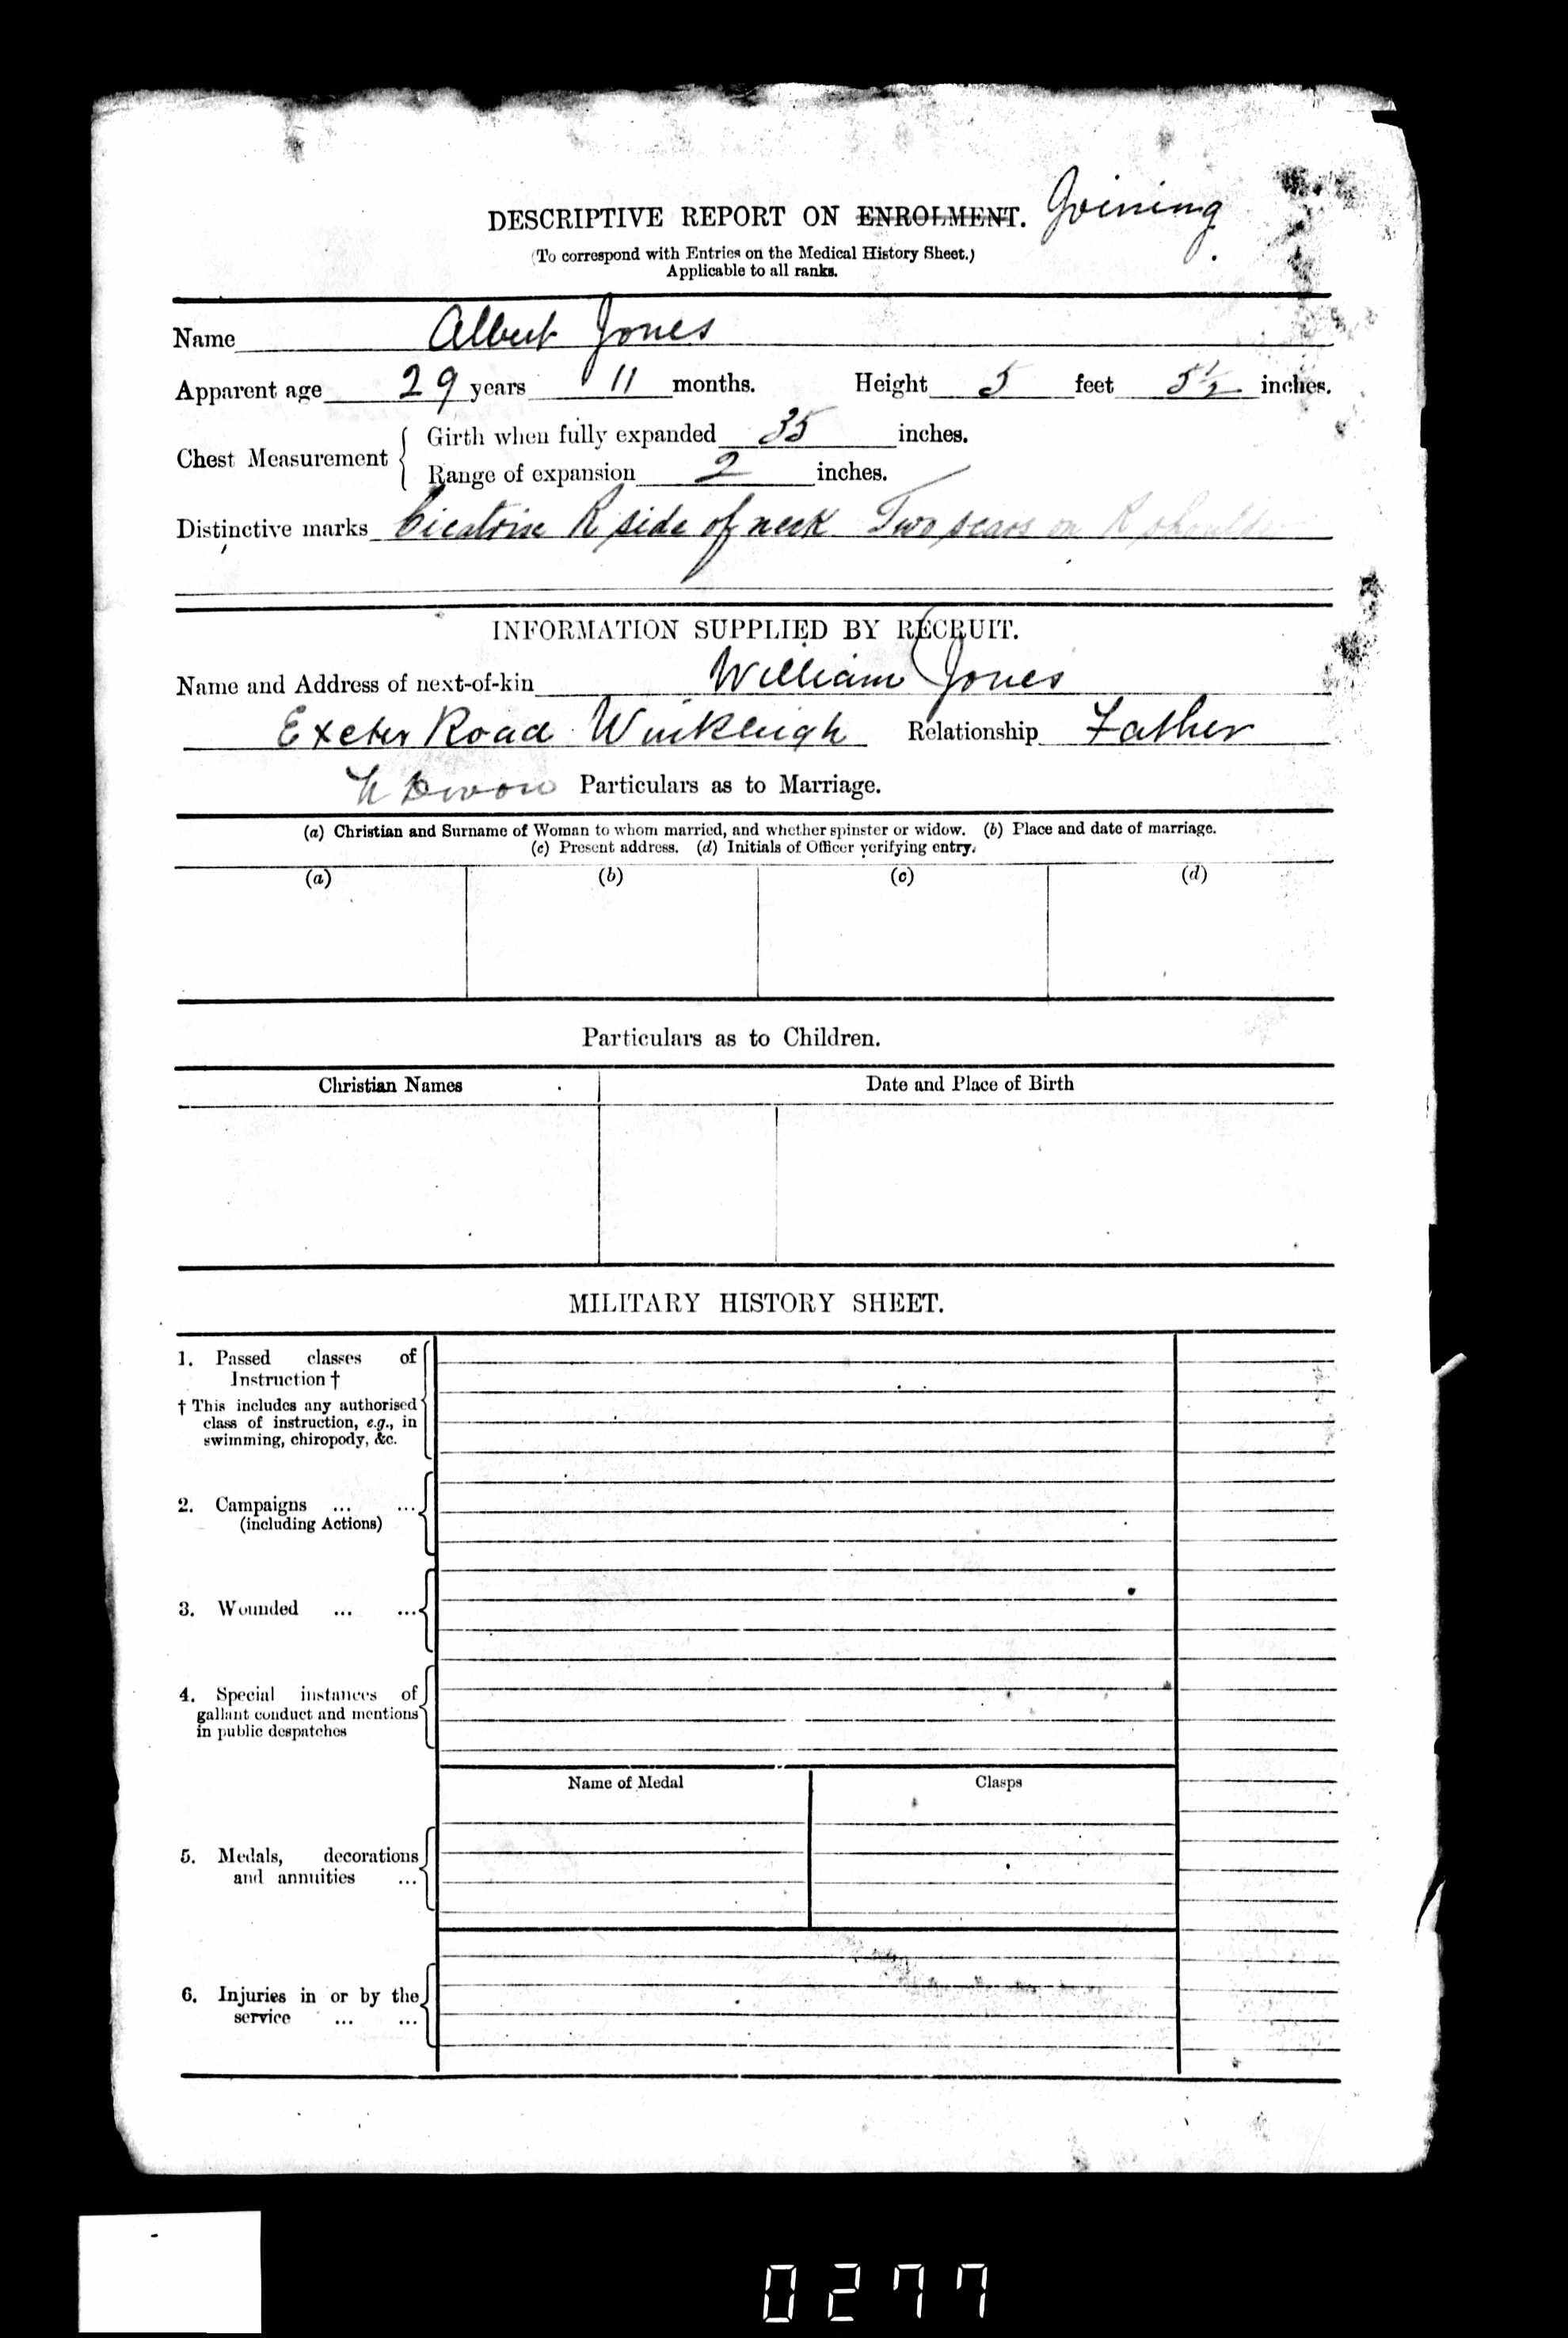 DESCRIPTIVE REPORT ON ENROLMENT. Joining
(To correspond with Entries on the Medical History Sheet.)
Applicable to all ranks.
Name Albert Jones
Apparent age 29 years 11 months. Height 5 feet 5 1/2 inches.
Chest Measurement { Girth when fully expanded 35 inches.
Range of expansion 2 inches.
Distinctive marks Cicatrise R side of neck Two scars on R shoulder
INFORMATION SUPPLIED BY RECRUIT.
Name and Address of next-of-kin William Jones
Exeter Road Winkleigh Relationship Father
N Devon Particulars as to Marriage.
(a) Christian and Surname of Woman to whom married, and whether spinster or widow. (b) Place and date of marriage.
(c) Present address. (d) Initials of Officer verifying entry.
(a) (b) (c) (d)
Particulars as to Children.
Christian Names Date and Place of Birth
MILITARY HISTORY SHEET.
1. Passed classes of
Instruction †
† This includes any authorised
class of instruction, e.g., in
swimming, chiropody, &c.
2. Campaigns ... ...
(including Actions)
3. Wounded ... ...
4. Special instances of
gallant conduct and mentions
in public despatches
Name of Medal Clasps
5. Medals, decorations
and annuities ...
6. Injuries in or by the
service ... ...
0277